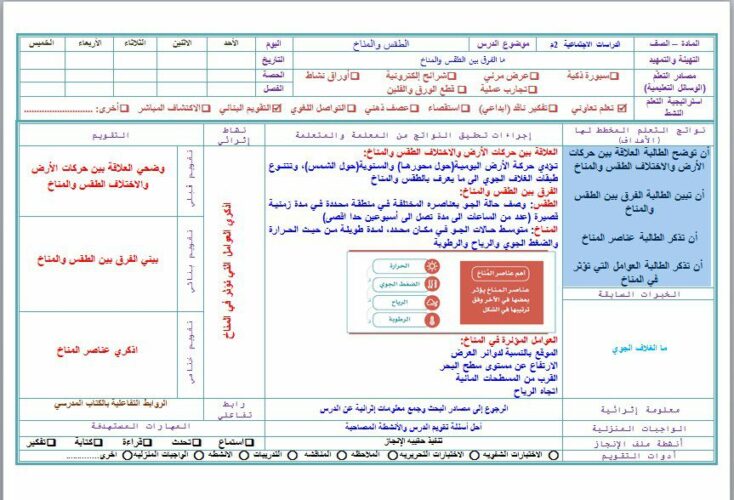 المادة – الصف الدراسات الاجتماعية 2م موضوع الدرس الطقس والمناخ اليوم الأحد الاثنين الثلاثاء الأربعاء الخميس
التهيئة والتمهيد ما الفرق بين الطقس والمناخ التاريخ
مصادر التعلم (الوسائل التعليمية) سبورة ذكية عرض مرئي شرائح إلكترونية أوراق نشاط الحصة
تجارب عملية قطع الورق والفلين الفصل
استراتيجية التعلم النشط تعلم تعاوني تفكير ناقد (ابداعي) استقصاء عصف ذهني التواصل اللغوي التقويم البنائي الاكتشاف المباشر أخرى: ........................
نواتج التعلم المخطط لها (الأهداف)
إجراءات تحقيق النواتج من المعلمة والمتعلمة
نشاط إثرائي
التقويم
أن توضح الطالبة العلاقة بين حركات الأرض والاختلاف الطقس والمناخ
أن تبين الطالبة الفرق بين الطقس والمناخ
أن تذكر الطالبة عناصر المناخ
أن تذكر الطالبة العوامل التي تؤثر في المناخ
الخبرات السابقة
ما الغلاف الجوي
العلاقة بين حركات الأرض والاختلاف الطقس والمناخ:
تؤدي حركة الأرض اليومية(حول محورها) والسنوية(حول الشمس)، وتتنوع
طبقات الغلاف الجوي الى ما يعرف بالطقس والمناخ
الفرق بين الطقس والمناخ:
الطقس: وصف حالة الجو بعناصره المختلفة في منطقة محددة في مدة زمنية
قصيرة (عدد من الساعات الى مدة تصل الى أسبوعين حدا اقصى)
المناخ: متوسط حالات الجو في مكان محدد، لمدة طويلة من حيث الحرارة
والضغط الجوي والرياح والرطوبة
أهم عناصر المناخ
عناصر المناخ يؤثر
بعضها في الآخر وفق
ترتيبها في الشكل
الحرارة
الضغط الجوي
الرياح
الرطوبة
العوامل المؤثرة في المناخ:
الموقع بالنسبة لدوائر العرض
الارتفاع عن مستوى سطح البحر
القرب من المسطحات المائية
اتجاه الرياح
اذكري العوامل التي تؤثر في المناخ
تقويم قبلي
وضحي العلاقة بين حركات الأرض والاختلاف الطقس والمناخ
تقويم بنائي
بيني الفرق بين الطقس والمناخ
تقويم ختامي
اذكري عناصر المناخ
معلومة إثرائية الرجوع إلى مصادر البحث وجمع معلومات إثرائية عن الدرس رابط تفاعلي الروابط التفاعلية بالكتاب المدرسي
الواجبات المنزلية أحل أسئلة تقويم الدرس والأنشطة المصاحبة المهارات المستهدفة
أنشطة ملف الإنجاز تنفيذ حقيبه الإنجاز استماع تحدث قراءة كتابة تفكير
أدوات التقويم الاختبارات الشفويه الاختبارات التحريريه الملاحظه المناقشه التدريبات الأنشطه الواجبات المنزليه اخرى..............